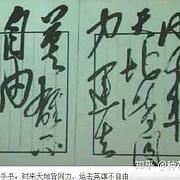 时来
天地皆同
力运去
英雄不
自由
知乎 @种花
手书,时来天地皆同力,运去英雄不自由